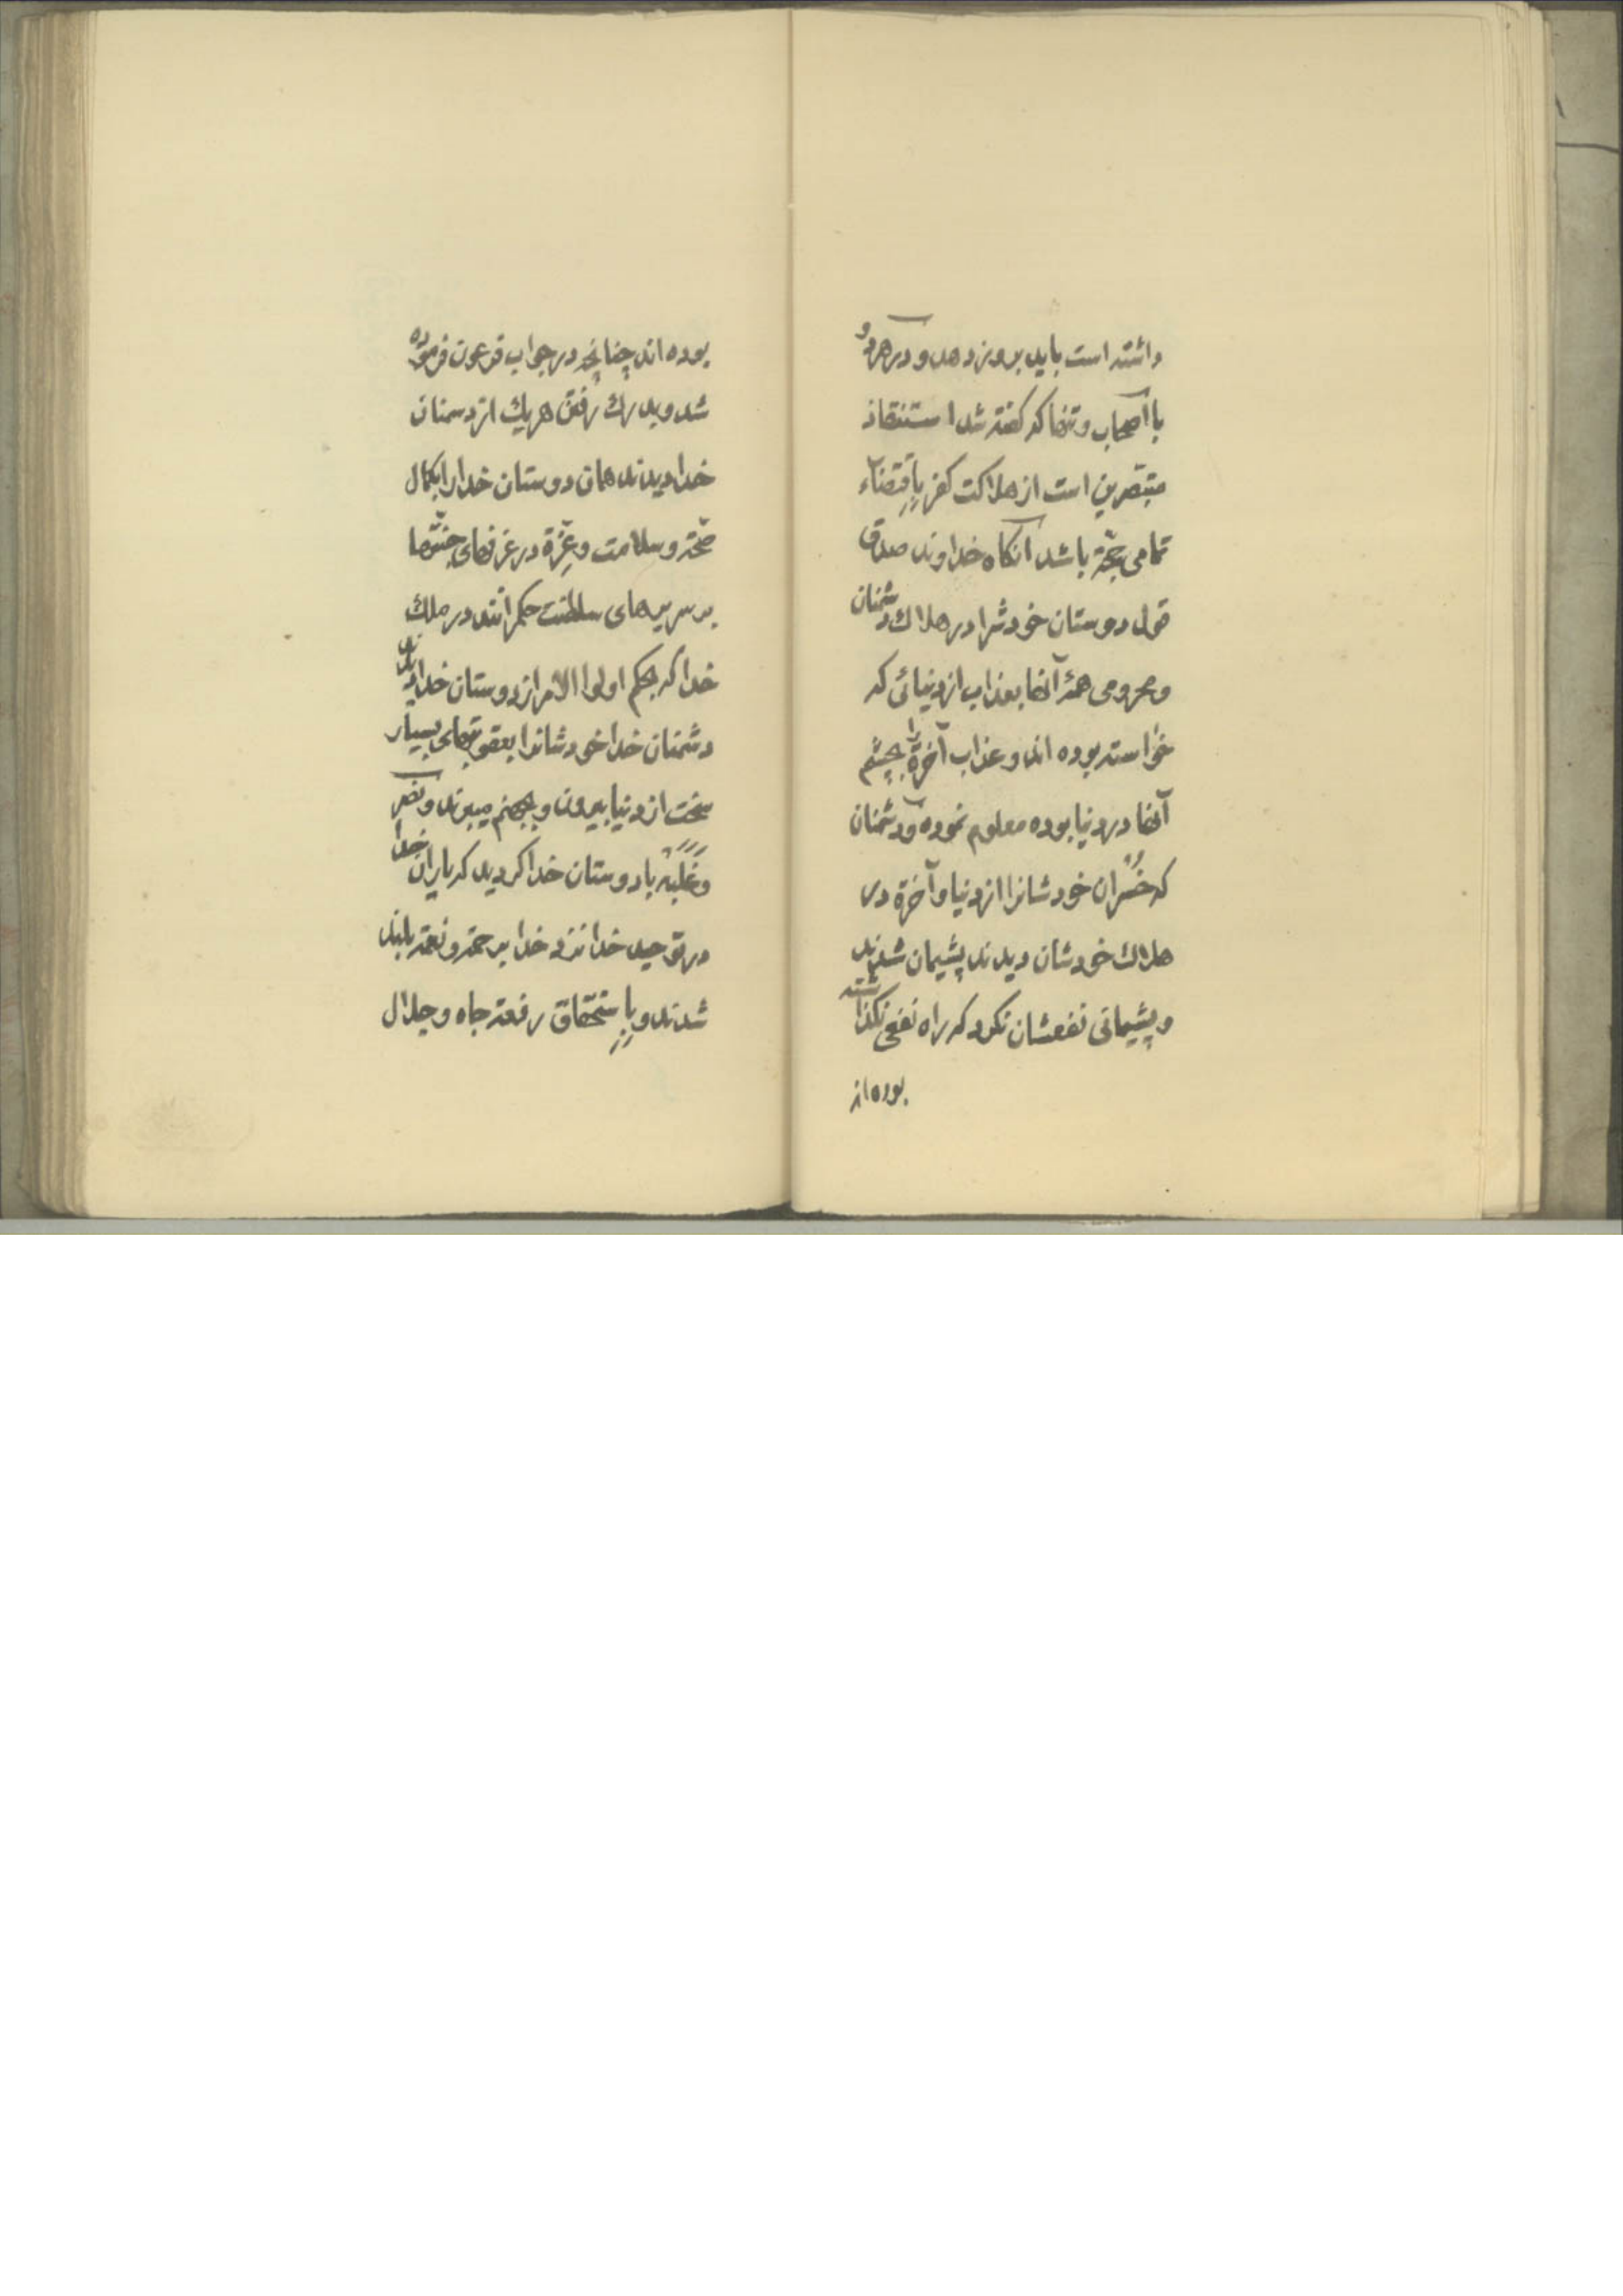 داشته است باید بروز دهد و در هر دو
با اصحاب و تنها که گفته شد استنقاذ
متبصرین است از هلاکت کفر باقتضاء
تمامی حجّة باشد آنکاه خداوند صدق
قول دوستان خودش را در هلاك دشمنان
و محرومی همهٔ آنها بعذاب از دنیائی که
خواسته بوده اند و عذاب آخرة را بچشم
آنها در دنیا بوده معلوم نموده و دشمنان
که خسران خودشانرا از دنیا و آخرة در
هلاك خودشان دیدند پشیمان شدند
و پشیمانی نفعشان نکرد که راه نفعی نکذاشته
بوده اند
بوده اند چنانچه در جواب فرعون فرموده
شد و بدرك رفتن هریك از دسمنان
خدا دیدند همان دوستان خدا را بکمال
صحّة و سلامت و عزّة در غرفهای جنّتها
بر سریرهای سلطنت حکمرانند در ملك
خدا که بحکم اولوا الامر از دوستان خدایند
دشمنان خدا خودشانرا بعقوبتهای بسیار
سخت از دنیا بیرون و بجهنم میبرند و نصر
و غلبه با دوستان خدا کردید که یاران خدا
در توحید خدا نزد خدا برحمة و نعمة بلند
شدند و باستحقاق رفعة جاه و جلال